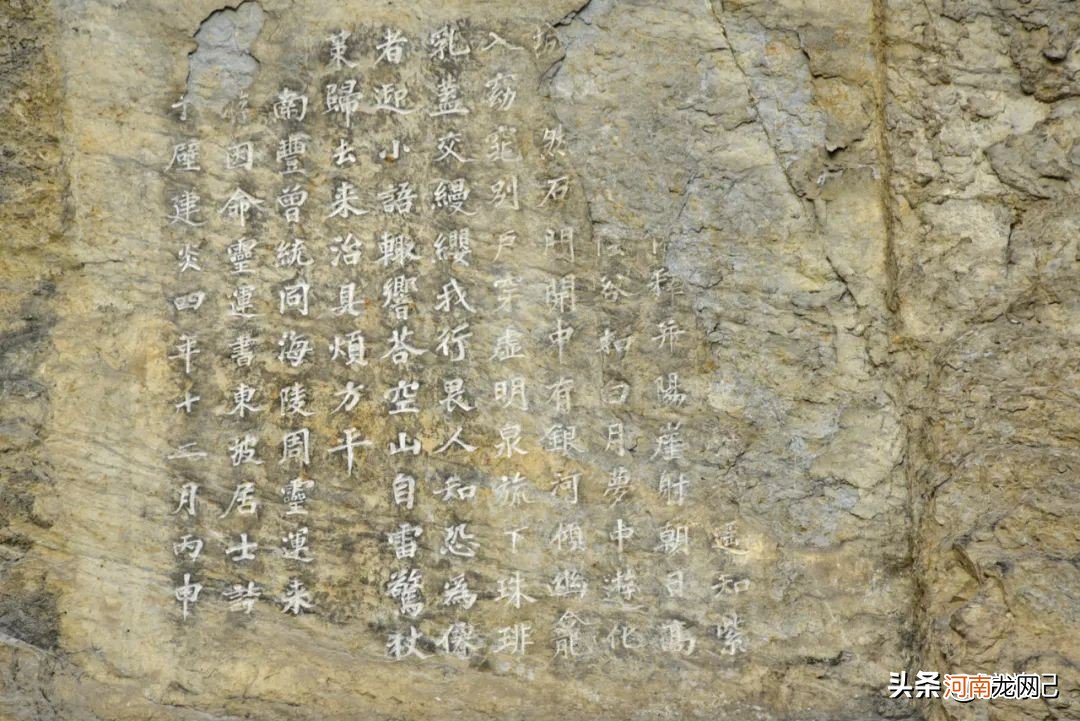 遥知紫
釋并陽崖射朝日高
谷叩白月夢中遊化
然石門開中有銀河傾幽龕
入窈窕別戶穿虛明泉流下珠琲
乳蓋交縵纓我行畏人知恐為僊
者迎小語輒響荅空山自雷驚杖
策歸去来治具煩方平
南豐曾統同海陵周靈運来
因命靈運書東坡居士詩
于壁建炎四年十二月丙申
头条 @河南龙网己